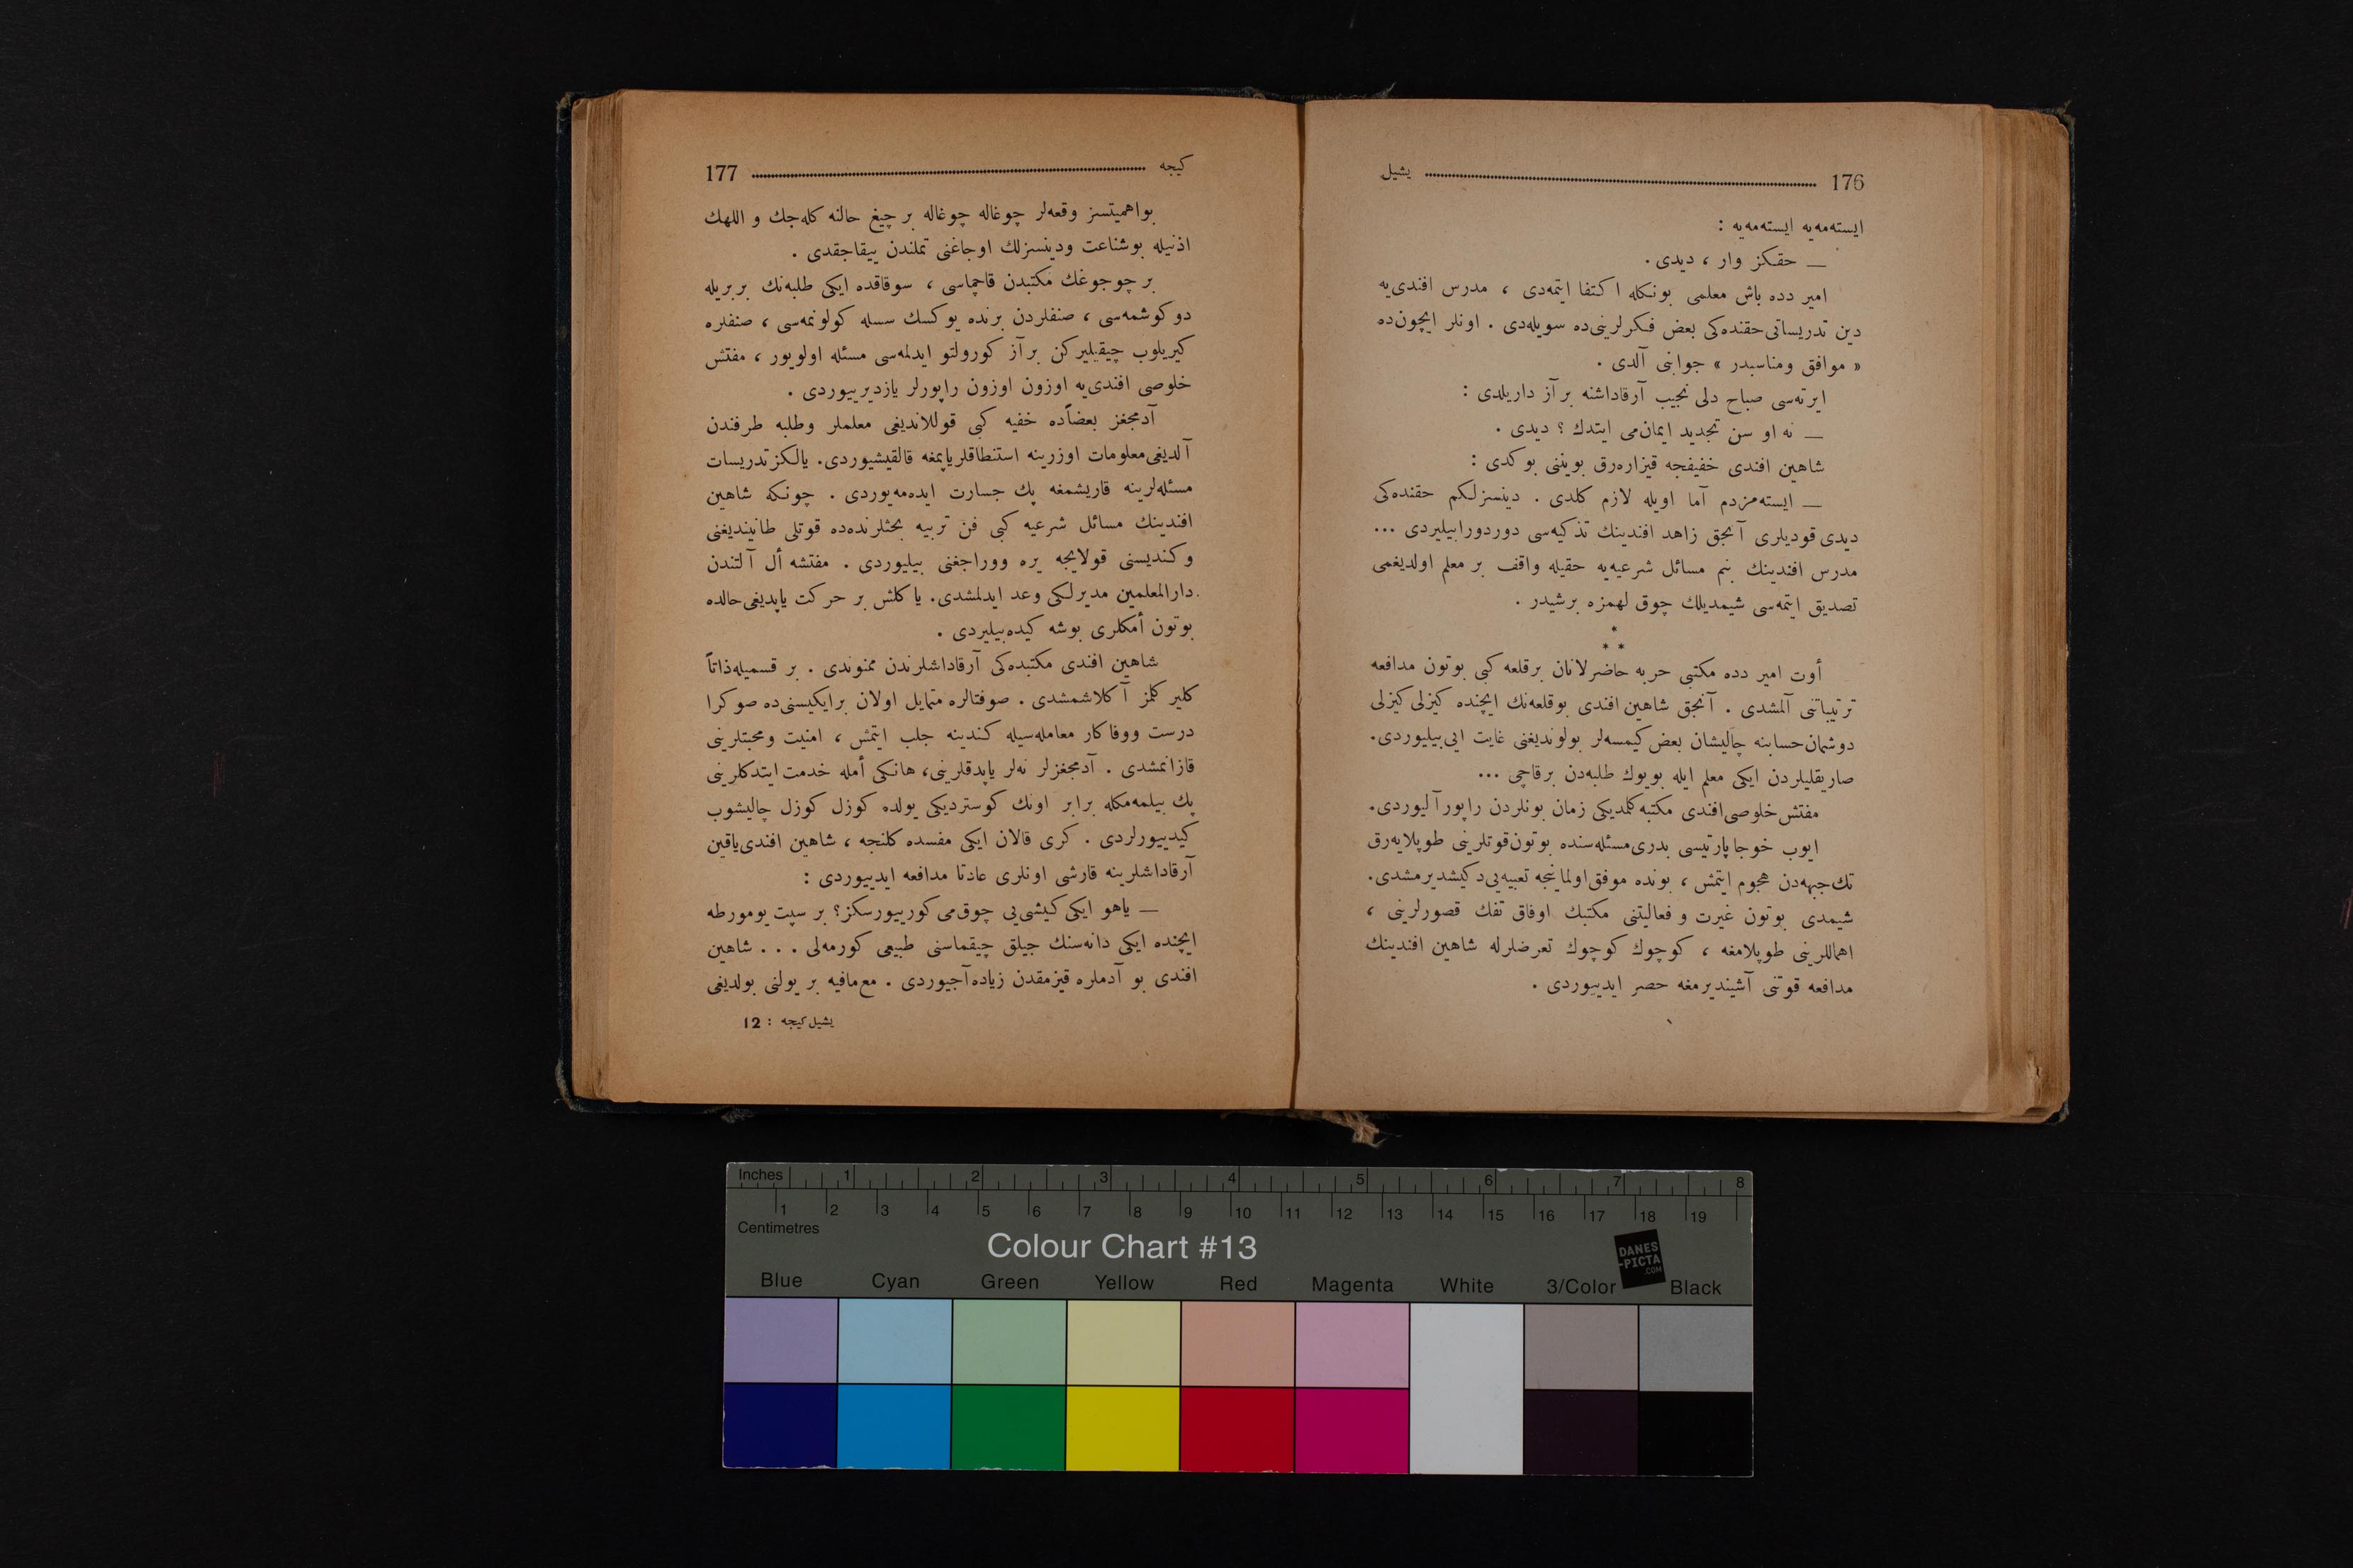 176 يشيل
ايسته‌مه‌يه ايسته‌مه‌يه :
— حقكز وار ، ديدى .
امير دده باش معلمى بونكله اكتفا ايتمه‌دى ، مدرس افندى‌يه
دين تدريساتى حقنده‌كى بعض فكرلرينى‌ده سويله‌دى . اونلر ايچون‌ده
« موافق ومناسبدر » جوابنى آلدى .
ايرته‌سى صباح دلى نجيب آرقاداشنه بر آز داريلدى :
— نه او سن تجديد ايمان‌مى ايتدك ؟ ديدى .
شاهين افندى خفيفجه قيزاره‌رق بويننى بوكدى :
— ايسته‌مزدم آما اويله لازم كلدى . دينسزلكم حقنده‌كى
ديدى قوديلرى آنجق زاهد افندينك تذكيه‌سى دوردورابيليردى ...
مدرس افندينك بنم مسائل شرعيه‌يه حقيله واقف بر معلم اولديغمى
تصديق ايتمه‌سى شيمديلك چوق لهمزه برشيدر .
*
* *
أوت امير دده مكتبى حربه حاضرلانان برقلعه كبى بوتون مدافعه
ترتيباتنى آلمشدى . آنجق شاهين افندى بوقلعه‌نك ايچنده كيزلى كيزلى
دوشمان حسابنه چاليشان بعض كيمسه‌لر بولونديغنى غايت ايى بيليوردى.
صاريقليلردن ايكى معلم ايله بويوك طلبه‌دن برقاچى ...
مفتش خلوصى افندى مكتبه كلمديكى زمان بونلردن راپور آليوردى.
ايوب خوجا پارتيسى بدرى مسئله‌سنده بوتون قوتلرينى طوپلايه‌رق
تك جبهه‌دن هجوم ايتمش ، بونده موفق اولماينجه تعبيه‌يى دكيشديرمشدى.
شيمدى بوتون غيرت و فعاليتنى مكتبك اوفاق تفك قصورلرينى ،
اهماللرينى طوپلامغه ، كوچوك كوچوك تعرضلرله شاهين افندينك
مدافعه قوتنى آشينديرمغه حصر ايدييوردى .
كيجه 177
بواهميتسز وقعه‌لر چوغاله چوغاله بر چيغ حالنه كله‌جك و اللهك
اذنيله بوشناعت ودينسزلك اوجاغنى تملندن ييقاجقدى .
بر چوجوغك مكتبدن قاچماسى ، سوقاقده ايكى طلبه‌نك بربريله
دوكوشمه‌سى ، صنفلردن برنده يوكسك سسله كولونمه‌سى ، صنفلره
كيريلوب چيقيليركن بر آز كورولتو ايدلمه‌سى مسئله اولويور ، مفتش
خلوصى افندى‌يه اوزون اوزون راپورلر يازديرييوردى .
آدمجغز بعضاًده خفيه كبى قوللانديغى معلملر وطلبه طرفندن
آلديغى معلومات اوزرينه استنطاقلر ياپمغه قالقيشيوردى. يالكز تدريسات
مسئله‌لرينه قاريشمغه پك جسارت ايده‌مه‌يوردى . چونكه شاهين
افندينك مسائل شرعيه كبى فن تربيه بحثلرنده‌ده قوتلى طانينديغنى
وكنديسنى قولايجه يره ووراجغنى بيليوردى . مفتشه أل آلتندن
دارالمعلمين مديرلكى وعد ايدلمشدى. ياكلش بر حركت ياپديغى حالده
بوتون أمكلرى بوشه كيده‌بيليردى .
شاهين افندى مكتبده‌كى آرقاداشلرندن ممنوندى . بر قسميله ذاتاً
كلير كلمز آكلاشمشدى . صوفتالره متمايل اولان برايكيسنى‌ده صوكرا
درست ووفاكار معامله‌سيله كندينه جلب ايتمش ، امنيت ومحبتلرينى
قازانمشدى . آدمجغزلر نه‌لر ياپدقلرينى، هانكى أمله خدمت ايتدكلرينى
پك بيلمه‌مكله برابر اونك كوسترديكى يولده كوزل كوزل چاليشوب
كيدييورلردى . كرى قالان ايكى مفسده كلنجه ، شاهين افندى ياقين
آرقاداشلرينه قارشى اونلرى عادتا مدافعه ايدييوردى :
— ياهو ايكى كيشى‌يى چوق‌مى كورييورسكز؟ بر سپت يومورطه
ايچنده ايكى دانه‌سنك جيلق چيقماسنى طبيعى كورمه‌لى . . . شاهين
افندى بو آدملره قيزمقدن زياده آجيوردى . مع‌مافيه بر يولنى بولديغى
يشيل كيجه : 12
Inches 1 2 3 4 5 6 7 8
1 2 3 4 5 6 7 8 9 10 11 12 13 14 15 16 17 18 19
Centimetres
Colour Chart #13
DANES
-PICTA
.COM
Blue Cyan Green Yellow Red Magenta White 3/Color Black